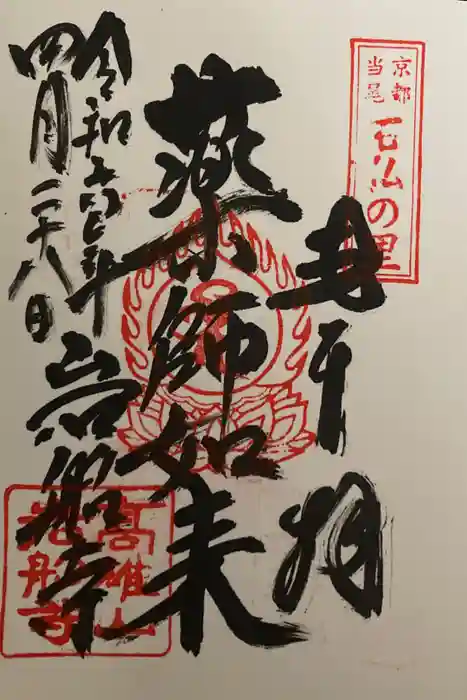 京都
当尾
石仏の里
奉拝
薬師如来
岩船寺
令和六年
四月二十八日
高雄山
岩船寺